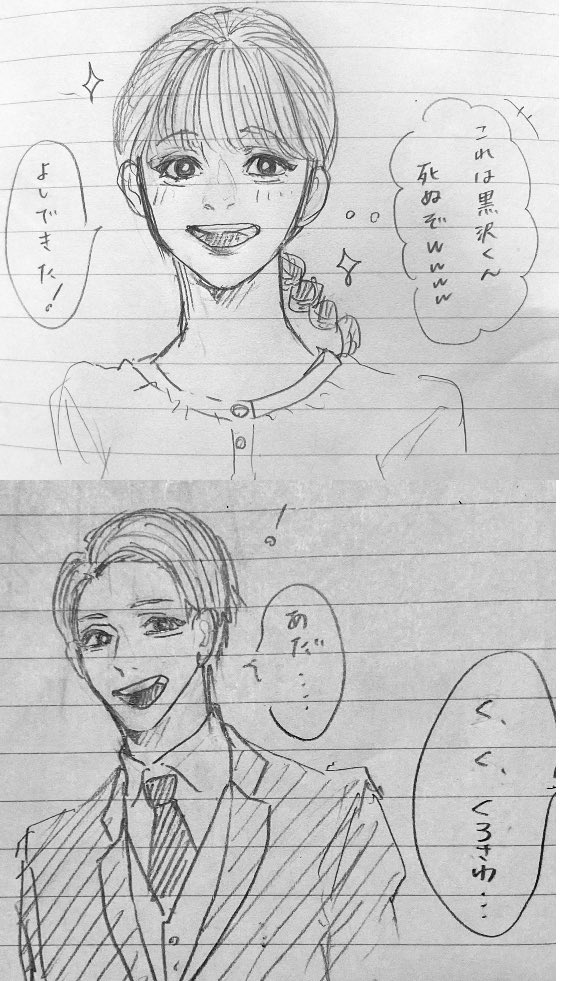 これは黒沢くん
死ぬぞwwww
よしできた!
!
あだ……
く、く、くろさわ…